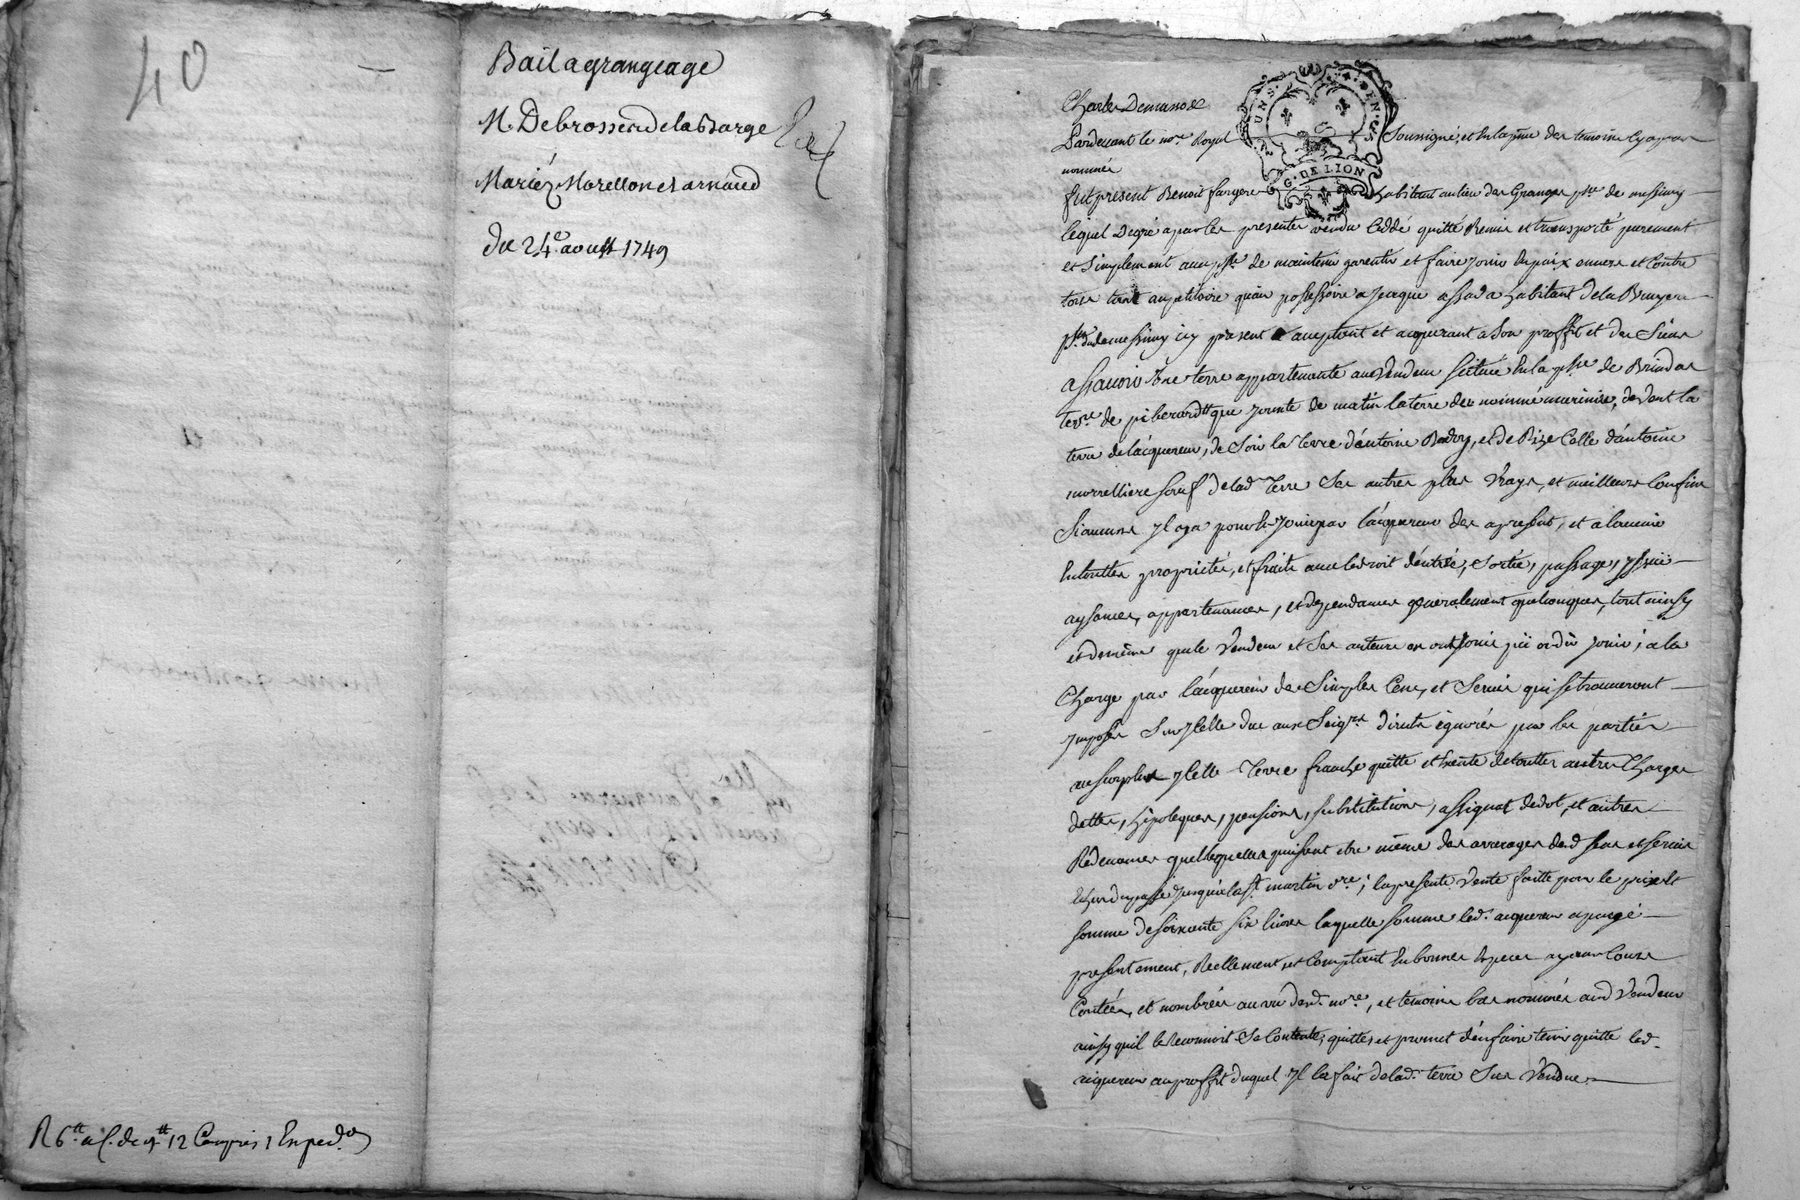 40
Bail a grangeage
M. Debrosse de la Barge
Mariéz Morellon et arnaud
du 24e aoust 1749
R 6tt 12 Compris 1 Exped.on
UNS. DEN.ERS
G. DE LION
Pardevant le nore Royal soussigné, et en la pnce des temoins cy apres
nommés
fut present Benoit fargere habitant au lieu des Granges psse de messimy
lequel de gré a par les presentes vendu Ceddé quitté Remis et transporté purement
et simplement avec psse de maintenir garentir et faire jouir en paix envers et Contre
tous tant au petitoire qu'au possessoire a Jacque assada habitant de la Bruyere
psse dud messimy icy present acceptant et acquerant a son proffit et des siens
assavoir Une terre appartenante aud Vendeur scituée en la psse de Brindas
terre de que jointe de matin la terre des nommé de vent la
terre de l'acquereur, de soir la terre d'antoine et de Bize Celle d'antoine
morelliere sauf de lad terre ses autres plus Vrays, et meilleurs Confins
si aucuns y a pour en jouir par l'acquereur des a present, et a l'avenir
en touttes proprietés, et fruits avec les droit d'entrée, sortie, passage, yssüe
aysances, appartenances, et dependances generalement quelconques, tout ainsy
et de même que le Vendeur et ses auteurs en ont jouis pû ou dû jouir, a la
Charge par l'acquereur des simples Cens, et servis qui se trouveront
Imposés sur jcelle due aux seigrs directs ignorés par les parties
au surplus jcelle terre franche quitte et exente de touttes autres Charges
dettes, hipoteques, pensions, substitutions, assignat de dot, et autres
Redevances quelles quelles puissent etre même des arrerages desd sens et servis
du passé jusqu'a la st martin la presente Vente faitte pour le prix et
somme de soixante six livres laquelle somme led. acquereur a payé
presentement, Reellement, et Comptant en bonnes Especes ayant Cours
Contées, et nombrées au vû dud. nore, et temoins bas nommés aud Vendeur
ainsy qu'il le reconnoit se Contente, quitte, et promet d'en faire tenir quitte led.
acquereur au proffit duquel Il les fait de lad. terre sus Vendue